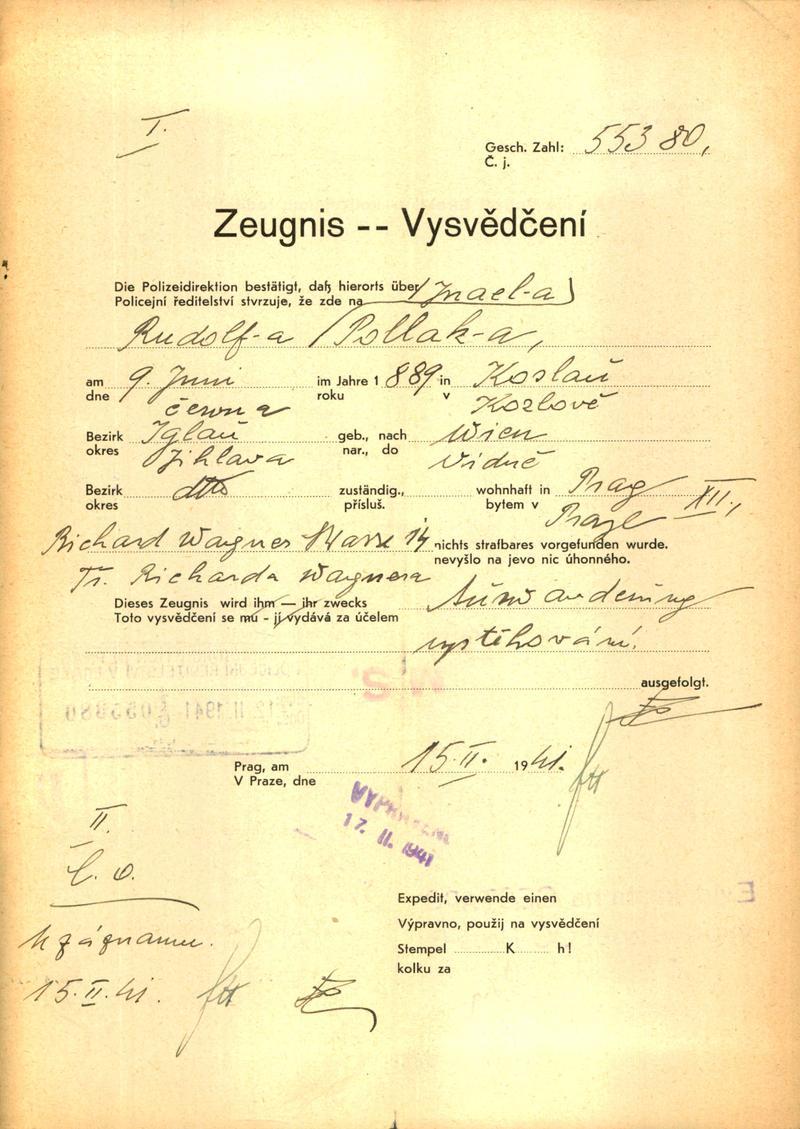 I.
Gesch. Zahl: 553 80,
Č. j.
Zeugnis -- Vysvědčení
Die Polizeidirektion bestätigt, daß hierorts über (Israel-a)
Policejní ředitelství stvrzuje, že zde na
Rudolf-a Pollak-a,
am 9. Juni im Jahre 1 889 in Koslau
dne června roku v Kozlově
Bezirk Iglau geb., nach Wien
okres Jihlava nar., do Vídně
Bezirk dtto zuständig., wohnhaft in Prag XII.,
okres přísluš. bytem v Praze
Richard Wagner Strasse 14 nichts strafbares vorgefunden wurde.
nevyšlo na jevo nic úhonného.
Tř. Richarda Wagnera
Dieses Zeugnis wird ihm — ihr zwecks Auswanderung
Toto vysvědčení se mu - jí vydává za účelem
vystěhování.
ausgefolgt.
Prag, am 15.II. 1941.
V Praze, dne
VYPRAVENO
17. II. 1941
II.
K záznamu.
15.II.41.
Expedit, verwende einen
Výpravno, použij na vysvědčení
Stempel K h!
kolku za